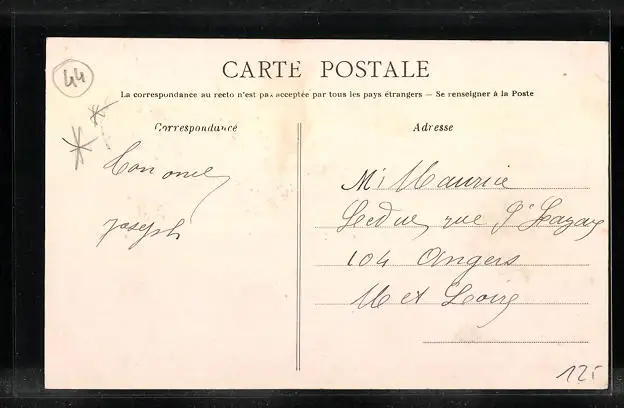 44
CARTE POSTALE
La correspondance au recto n'est pas acceptée par tous les pays étrangers — Se renseigner à la Poste
Correspondance
Adresse
ton oncle
Joseph
Mr Maurice
Leduc rue St Lazare
104 Angers
M et Loire
125